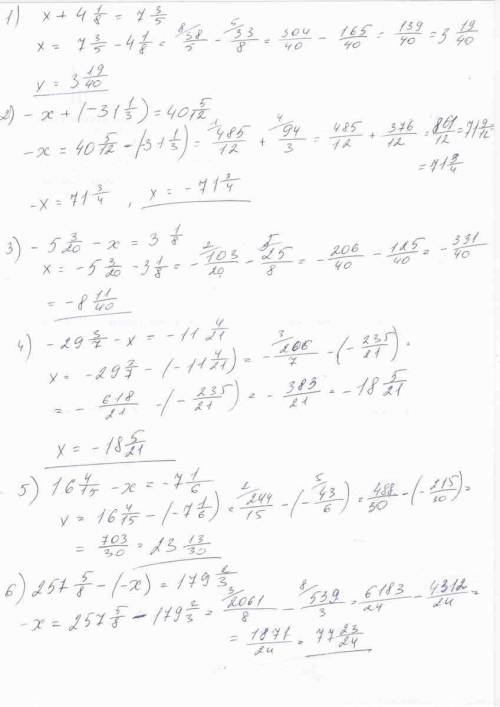 1) x + 4 1/8 = 7 3/5
x = 7 3/5 - 4 1/8 = 8/ 38/5 - 5/ 33/8 = 304/40 - 165/40 = 139/40 = 3 19/40
x = 3 19/40
2) - x + (-31 1/3) = 40 5/12
-x = 40 5/12 - (-31 1/3) = 1/ 485/12 + 4/ 94/3 = 485/12 + 376/12 = 861/12 = 71 9/12
= 71 3/4
-x = 71 3/4 , x = - 71 3/4
3) - 5 3/20 - x = 3 1/8
x = - 5 3/20 - 3 1/8 = - 2/ 103/20 - 5/ 25/8 = - 206/40 - 125/40 = - 331/40
= - 8 11/40
4) - 29 3/7 - x = - 11 4/21
x = - 29 3/7 - (- 11 4/21) = - 3/ 206/7 - (- 235/21) =
= - 618/21 - (- 235/21) = - 383/21 = - 18 5/21
x = - 18 5/21
5) 16 4/15 - x = - 7 1/6
x = 16 4/15 - (- 7 1/6) = 2/ 244/15 - (- 5/ 43/6) = 488/30 - (- 215/30) =
= 703/30 = 23 13/30
6) 257 5/8 - (-x) = 179 2/3
-x = 257 5/8 - 179 2/3 = 3/ 2061/8 - 8/ 539/3 = 6183/24 - 4312/24 =
= 1871/24 = 77 23/24